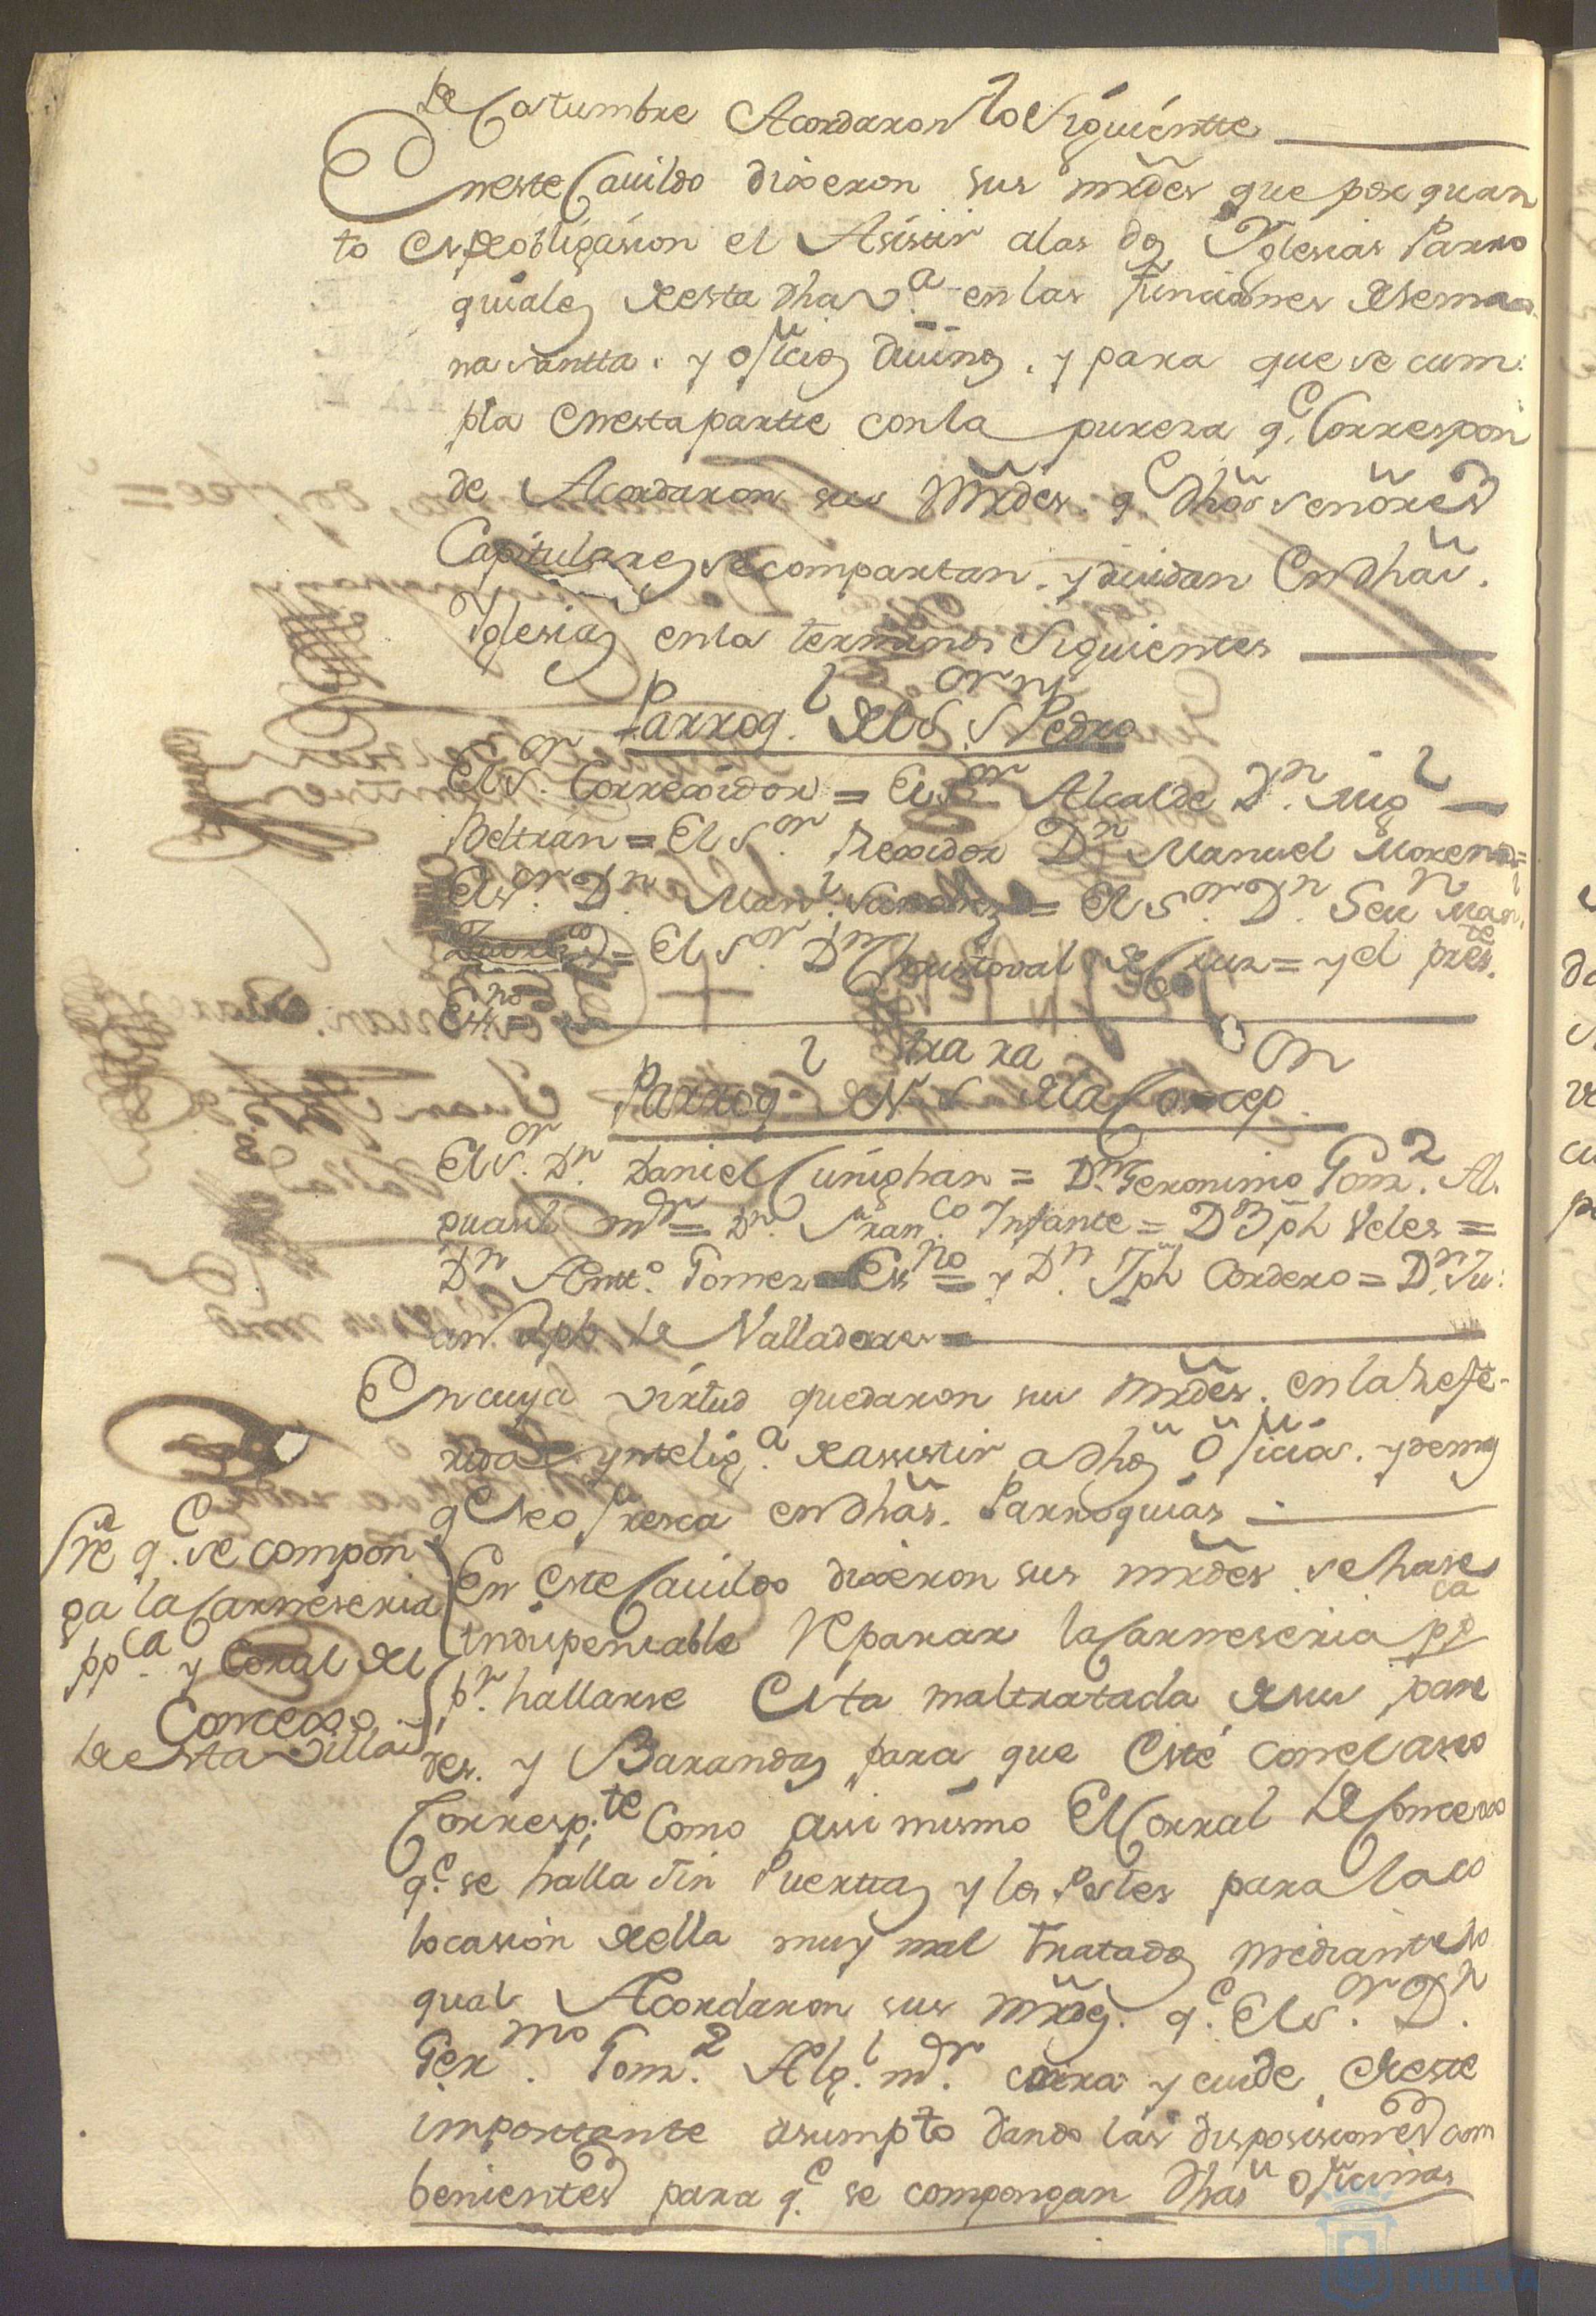 de Costumbre Acordaron lo siguientte
En este Cavildo dixeron sus mrdes que por quan
to es de obligasion el Asistir a las dos Yglesias Parro
quiales de esta dha va en las funciones de sema
na santta. y offizios divinos. y para que se cum
pla en esta partte con la pureza qe Correspon
de Acordaron sus Mrdes. qe dhos señores
Capitulares se compartan. y dividan en dhas.
Yglesias en los terminos siguientes
Parroql del Sor Sn Pedro
El Sor. Correxidor = El Sor Alcalde Dn. Migl
Beltran = El Sor. Rexidor Dn Manuel Moreno =
El Sor. Dn. Manl. Sanchez = El Sor. Dn. Sevn Marn
= El Sor Dn Christoval de Cruz = y el preste.
Essno =
Parroql de Ntra Sra de la Concepon
El Sor. Dn. Daniel Cunighan = Dn. Geronimo Gomz. Al
guasil mor = Dn. Franco Infante = Dn Jph Veles =
Dn Antto. Gomez Essno = y Dn. Jph Cordero = Dn. Ju
an Jph de Valladares =
En cuya virtud quedaron sus mrdes. en la refe
rida ynteliga. de assistir a dhos offisios. y demas
qe se ofresca en dhas. Parroquias
Sre qe. se compon
ga la Carneseria
ppca y Corral del
Concexo
de esta villa
En este Cavildo dixeron sus mrdes se hase
indispensable reparar la Carneseria ppca
pr. hallarse esta maltratada de sus pare
des. y Barandas para que esté con el aseo
Correspte. Como assi mismo El Corral de Concexo
qe. se halla sin Puerttas y los Postes para la co
locasion de ella muy mal tratados mediante lo
qual Acordaron sus Mrds. qe. El Sor. Dn.
Germo. Gomz. Algl. mor. corra y cuide de este
importante asumpto dando las disposisiones com
benientes para qe se compongan dhas offisinas
HUELVA